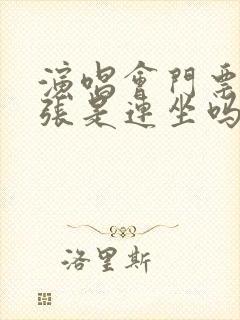 演唱會門票
張是連坐嗎
洛里斯